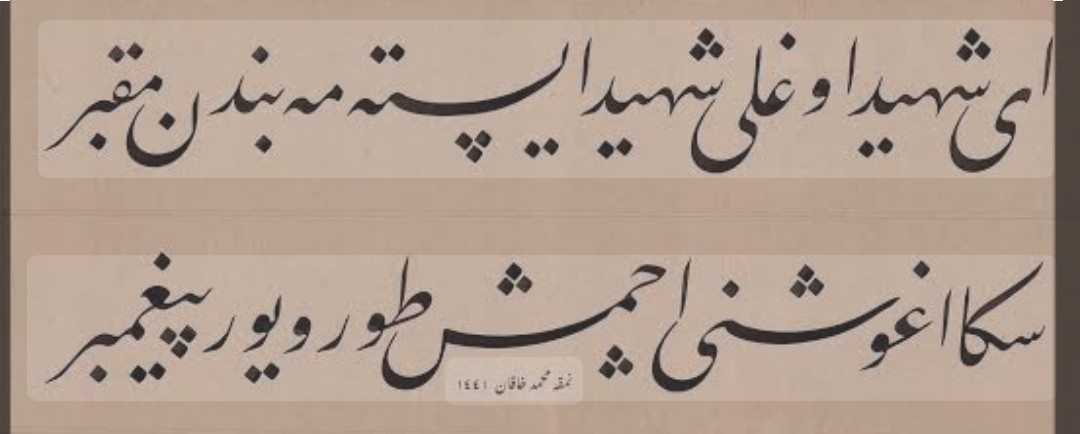 ای شهید اوغلی شهید ایسته مه بندن مقبر
سکا اغوشنی اچمش طورویور پیغمبر
نمقه محمد خاقان ١٤٤١